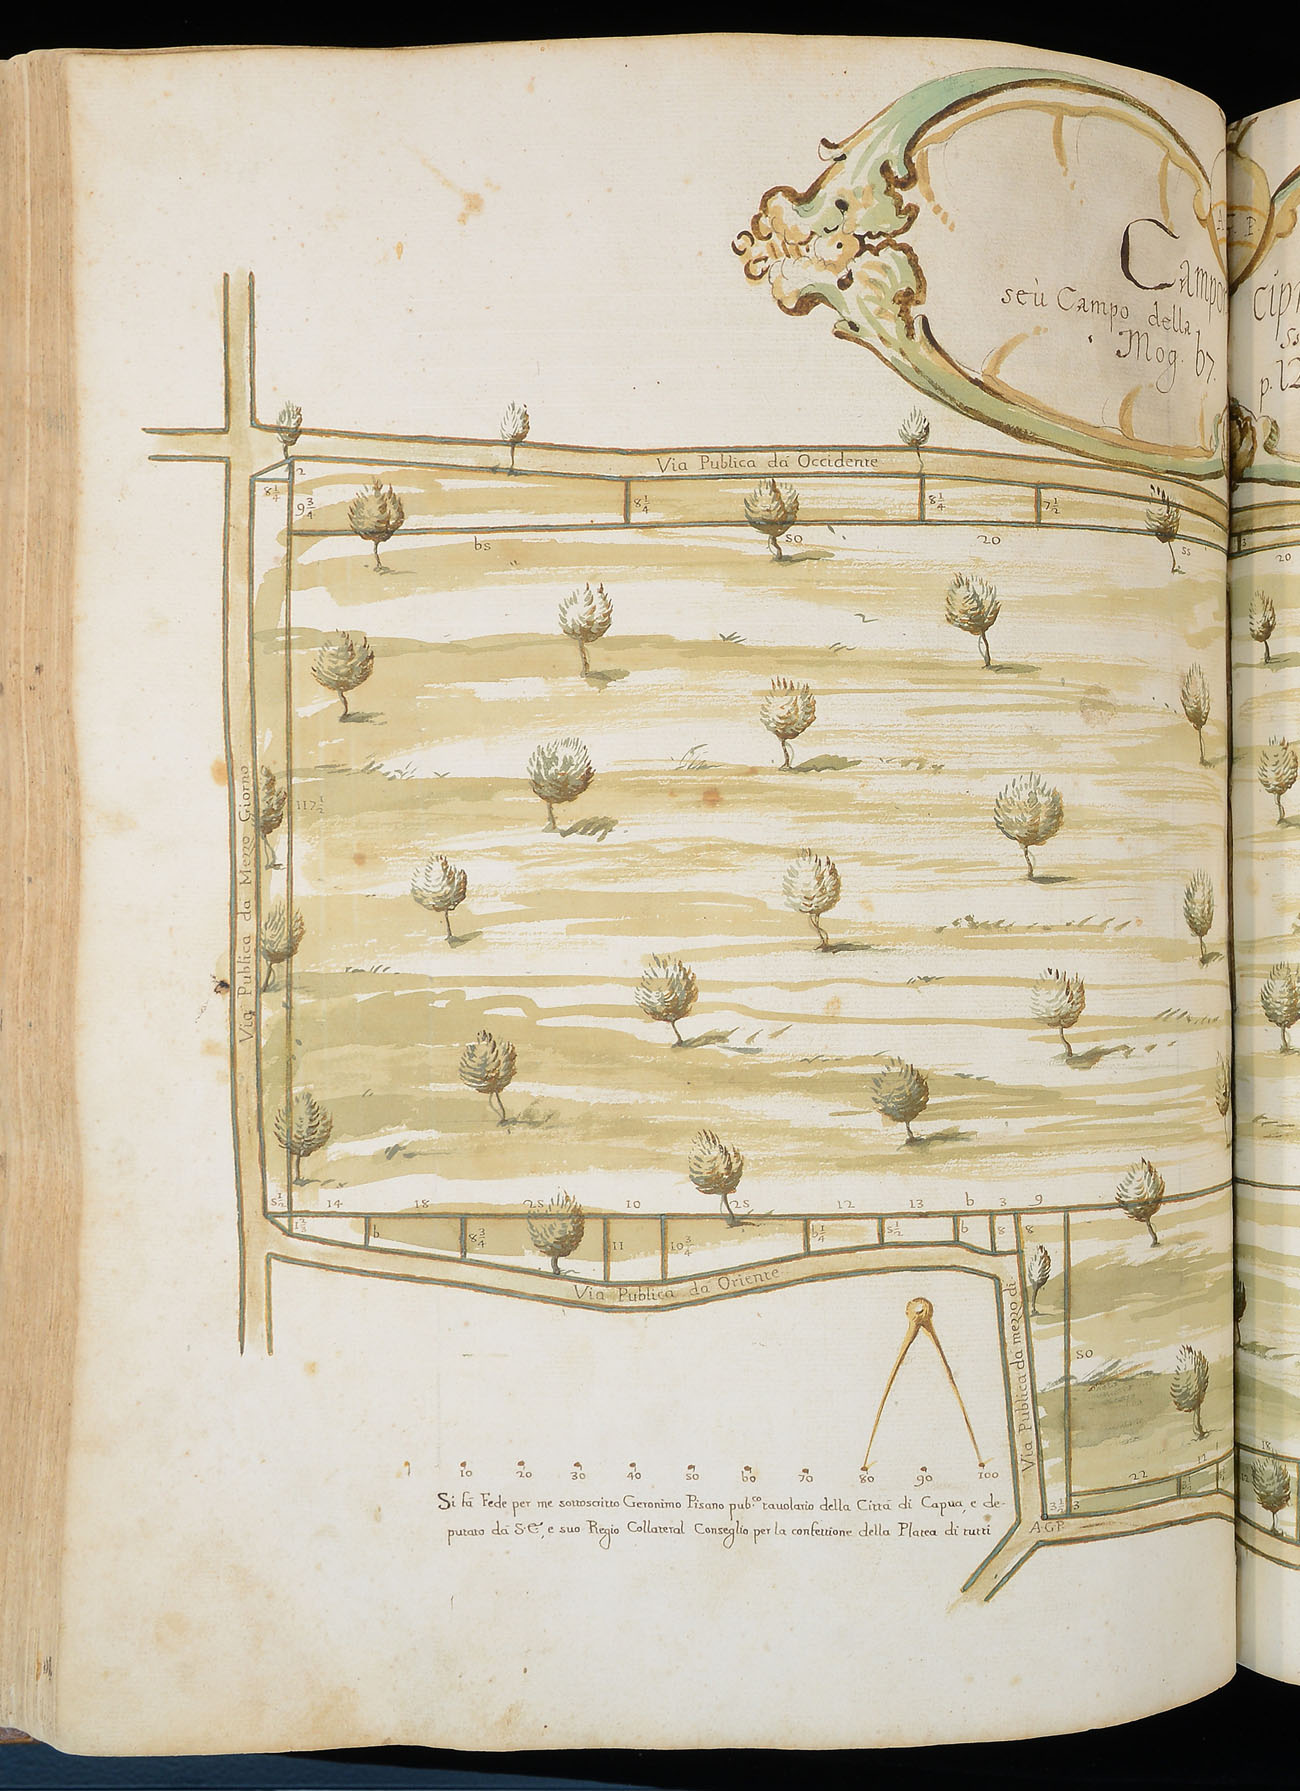 A. G. P.
Campo
seù Campo della
Mog. b7.
p. 12
Via Publica dà Occidente
2
8 1/4
9 3/4
8 1/4
8 1/4
7 1/2
bs
so
20
ss
20
117 1/2
Via Publica da Mezzo Giorno
5 1/2
14
18
2s
10
2s
12
13
b
3
9
1 2/3
b
8 3/4
11
10 3/4
b 1/4
s 1/2
b
8
8
Via Publica dà Oriente
Via Publica da mezzo dì
so
22
12
18
3 1/2
3
A.G.P.
10 20 30 40 so bo 70 80 90 100
Si fà Fede per me sottoscritto Geronimo Pisano pub.co tavolario della Città di Capua, e de-
putato dà S.E., e suo Regio Collateral Conseglio per la confettione della Platea di tutti